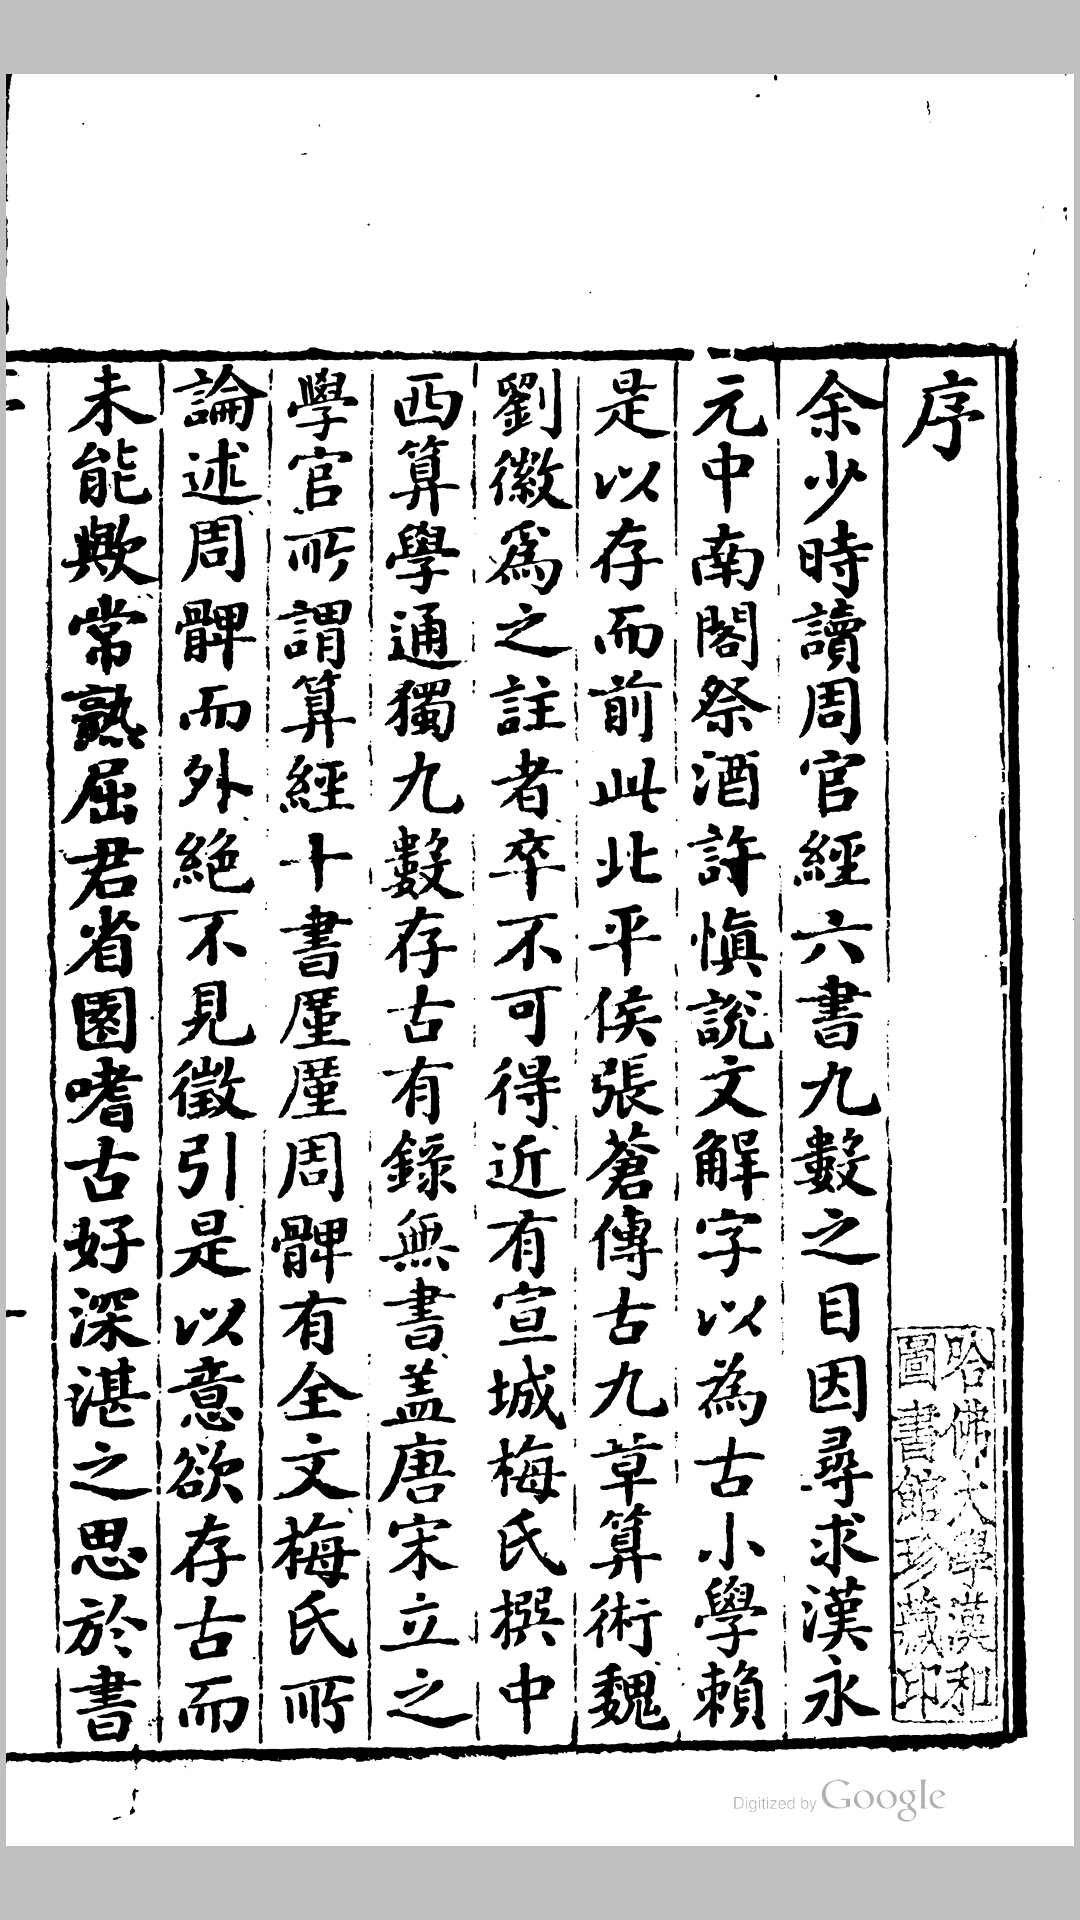 序
哈佛大學漢和
圖書館珍藏印
余少時讀周官經六書九數之目因尋求漢永
元中南閣祭酒許慎說文解字以為古小學賴
是以存而前此北平侯張蒼傳古九章算術魏
劉徽爲之註者卒不可得近有宣城梅氏撰中
西算學通獨九數存古有錄無書盖唐宋立之
學官所謂算經十書厪厪周髀有全文梅氏所
論述周髀而外絶不見徵引是以意欲存古而
未能歟常熟屈君省園嗜古好深湛之思於書
Digitized by Google